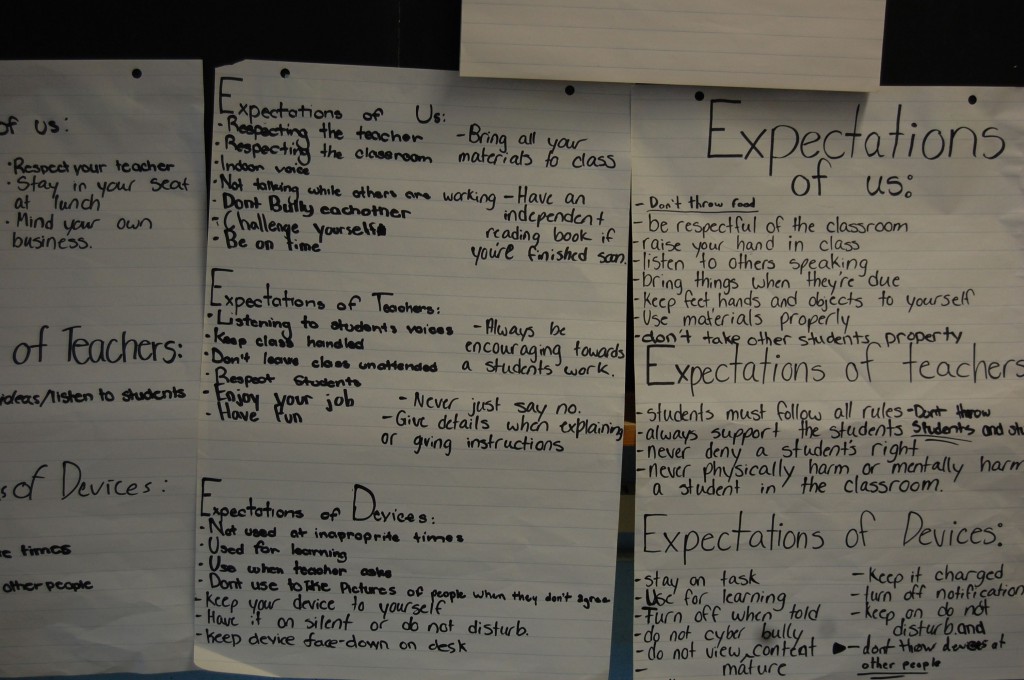 of us:
• Respect your teacher
• Stay in your seat
at lunch
• Mind your own
business.
of Teachers:
ideas/listen to students
s of Devices:
e times
other people
Expectations of Us:
- Respecting the teacher
- Respecting the classroom
- Indoor voice
- Not talking while others are working
- Dont Bully eachother
- Challenge yourself
- Be on time
- Bring all your
materials to class
- Have an
independent
reading book if
you're finished
Expectations of Teachers:
- Listening to students voices
- Keep class handled
- Don't leave class unattended
- Respect Students
- Enjoy your job
- Have fun
- Always be
encouraging towards
a students work.
- Never just say no.
- Give details when explaining
or giving instructions
Expectations of Devices:
- Not used at inaproprite times
- Used for learning
- Use when teacher asks
- Dont use to take Pictures of people when they don't agree
- Keep your device to yourself
- Have it on silent or do not disturb.
- Keep device face-down on desk
Expectations
of us:
- Don't throw food
- be respectful of the classroom
- raise your hand in class
- listen to others speaking
- bring things when they're due
- Keep feet, hands and objects to yourself
- Use materials properly
- don't take other students property
Expectations of teachers
- students must follow all rules
- Dont throw
Students and
- always support the students
- never deny a student's right
- never physically harm or mentally harm
a student in the classroom.
Expectations of Devices:
- stay on task
- Use for learning
- Turn off when told
- do not cyber bully
- do not view content
- mature
- Keep it charged
- turn off notification
- keep on do not
disturb. and
- dont throw devices at
other people